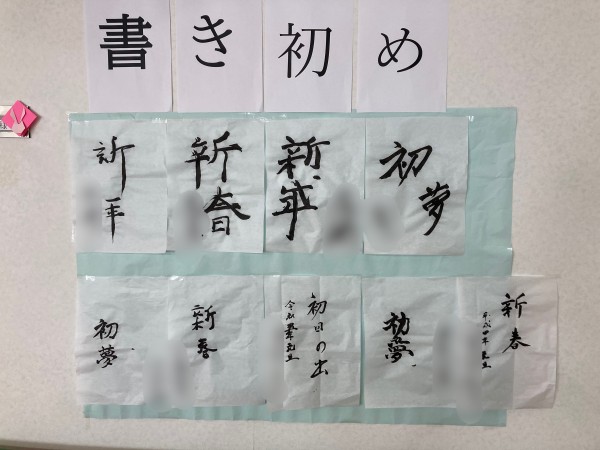 書き初め
新年
新春
新年
初夢
初夢
新春
初日の出
令和 元旦
初夢
新春
平成四年 元旦